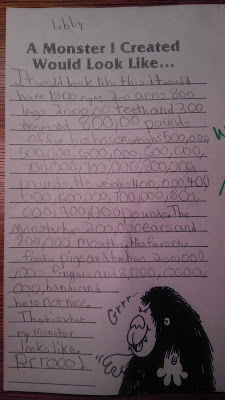 Libby
A Monster I Created
Would Look Like...
It would look like this it would
have 1300 eyes 200 arms 800
legs teeth and 200
thousand 800,00 pounds
as for his house weighs 500,000,
500,000,600,000,600,000,
700,000,800,000,
pounds. He weighs 400,000,400
000,600,000,700,000,800,
000,900,000 pounds. The
Monster has 200,000 ears and
800,000 mouths. His favorite
food is pigs and he has 200,000
,000 fingers and 8,000,0000,
000, hands and
he is not nice.
That is what
my monster
looks like.
Rrrooo!
Grrr...